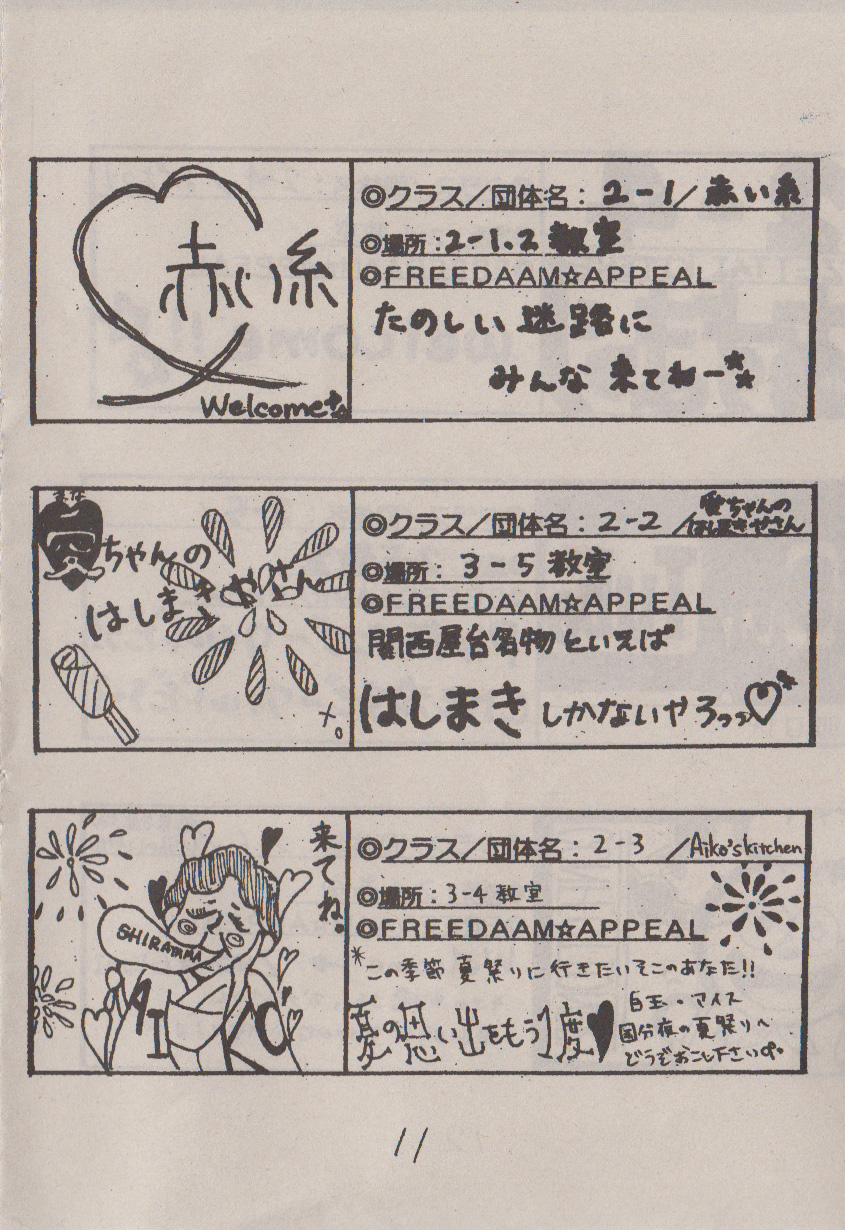 赤い糸
Welcome
◎クラス／団体名：2-1/赤い糸
◎場所：2-1.2 教室
◎FREEDAAM☆APPEAL
たのしい迷路に
みんな来てねー
まな
ちゃんの
はしまき
やさん
◎クラス／団体名：2-2 /愛ちゃんの
はしまきやさん
◎場所：3-5 教室
◎FREEDAAM☆APPEAL
関西屋台名物といえば
はしまきしかないやろっっ♡
来てね。
SHIRATAMA
◎クラス／団体名：2-3 /Aiko'skitchen
◎場所：3-4 教室
◎FREEDAAM☆APPEAL
*この季節 夏祭りに行きたいそこのあなた!!
夏の思い出をもう1度♥
白玉・アイス
国分夜の夏祭りへ
どうぞおこし下さい
11